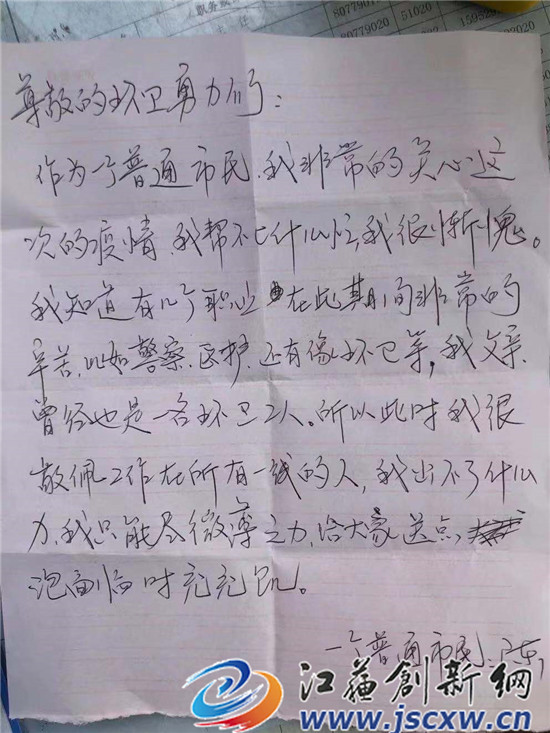 80779020 51020 15952
尊敬的环卫勇力们：
作为一个普通市民,我非常的关心这
次的疫情,我帮不上什么忙,我很惭愧。
我知道有几个职业 在此其间非常的
辛苦,比如警察.医护.还有像环卫等,我父亲
曾经也是一名环卫工人。所以此时我很
敬佩工作在所有一线的人,我出不了什么
力,我只能尽微薄之力,给大家送点
泡面临时充充饥。
一个普通市民:陈
江苏创新网
www.jscxw.cn